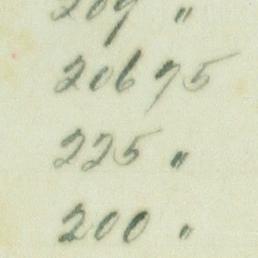 209 "
206 75
225 "
200 "